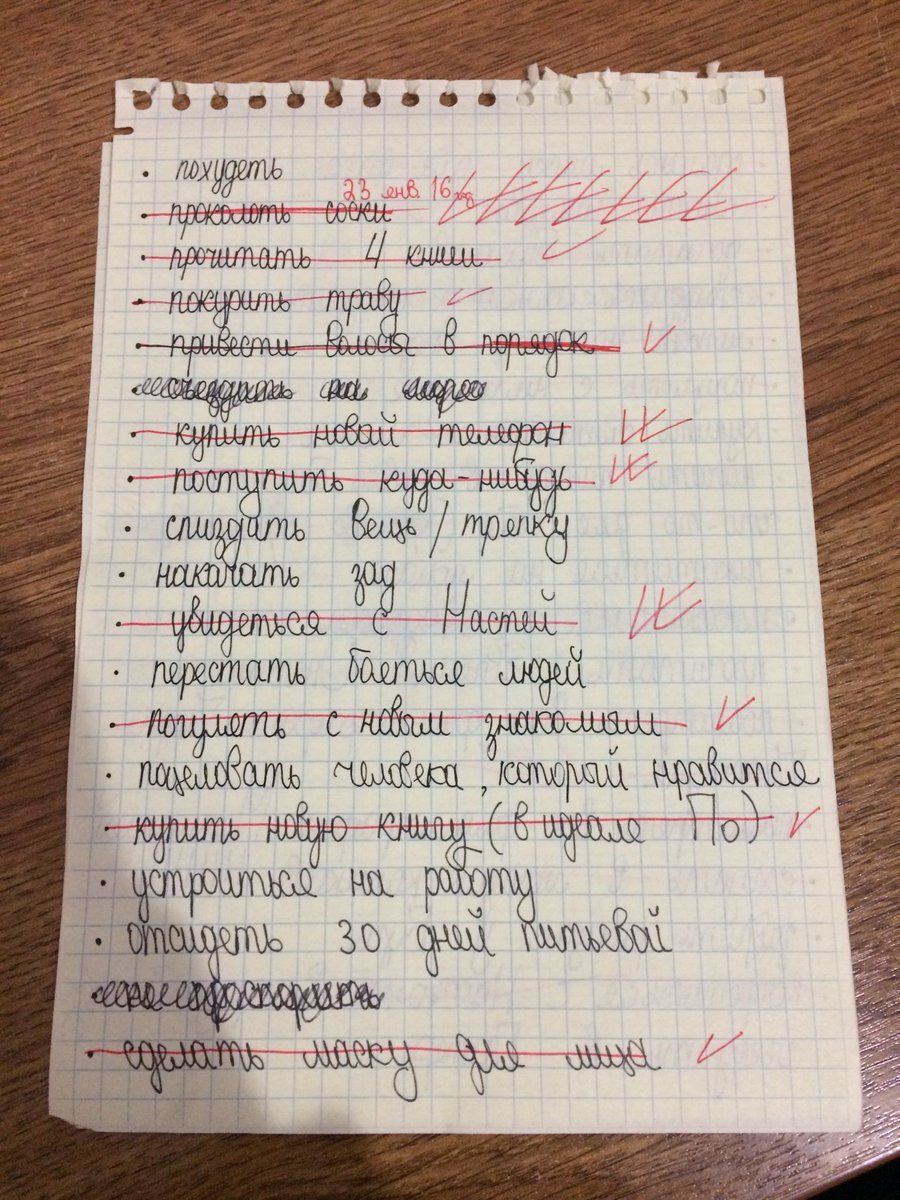 • похудеть
23 янв. 16
• проколоть соски
• прочитать 4 книги
• покурить траву
• привести волосы в порядок
на море
• купить новай телефон
• поступить куда-нибудь
• спиздать вещь / тряпку
• накачать зад
• увидеться с Настей
• перестать баеться людей
• погулять с новым знакомым
• поцеловать человека, который нравится
• купить новую книгу (в идеале По)
• устроиться на работу
• отсидеть 30 дней питьевой
• сделать маску для лица